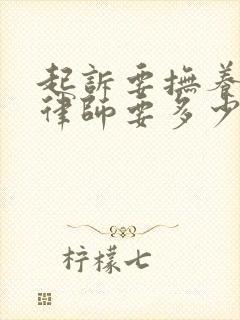 起訴要撫養
律師要多少
柠檬七